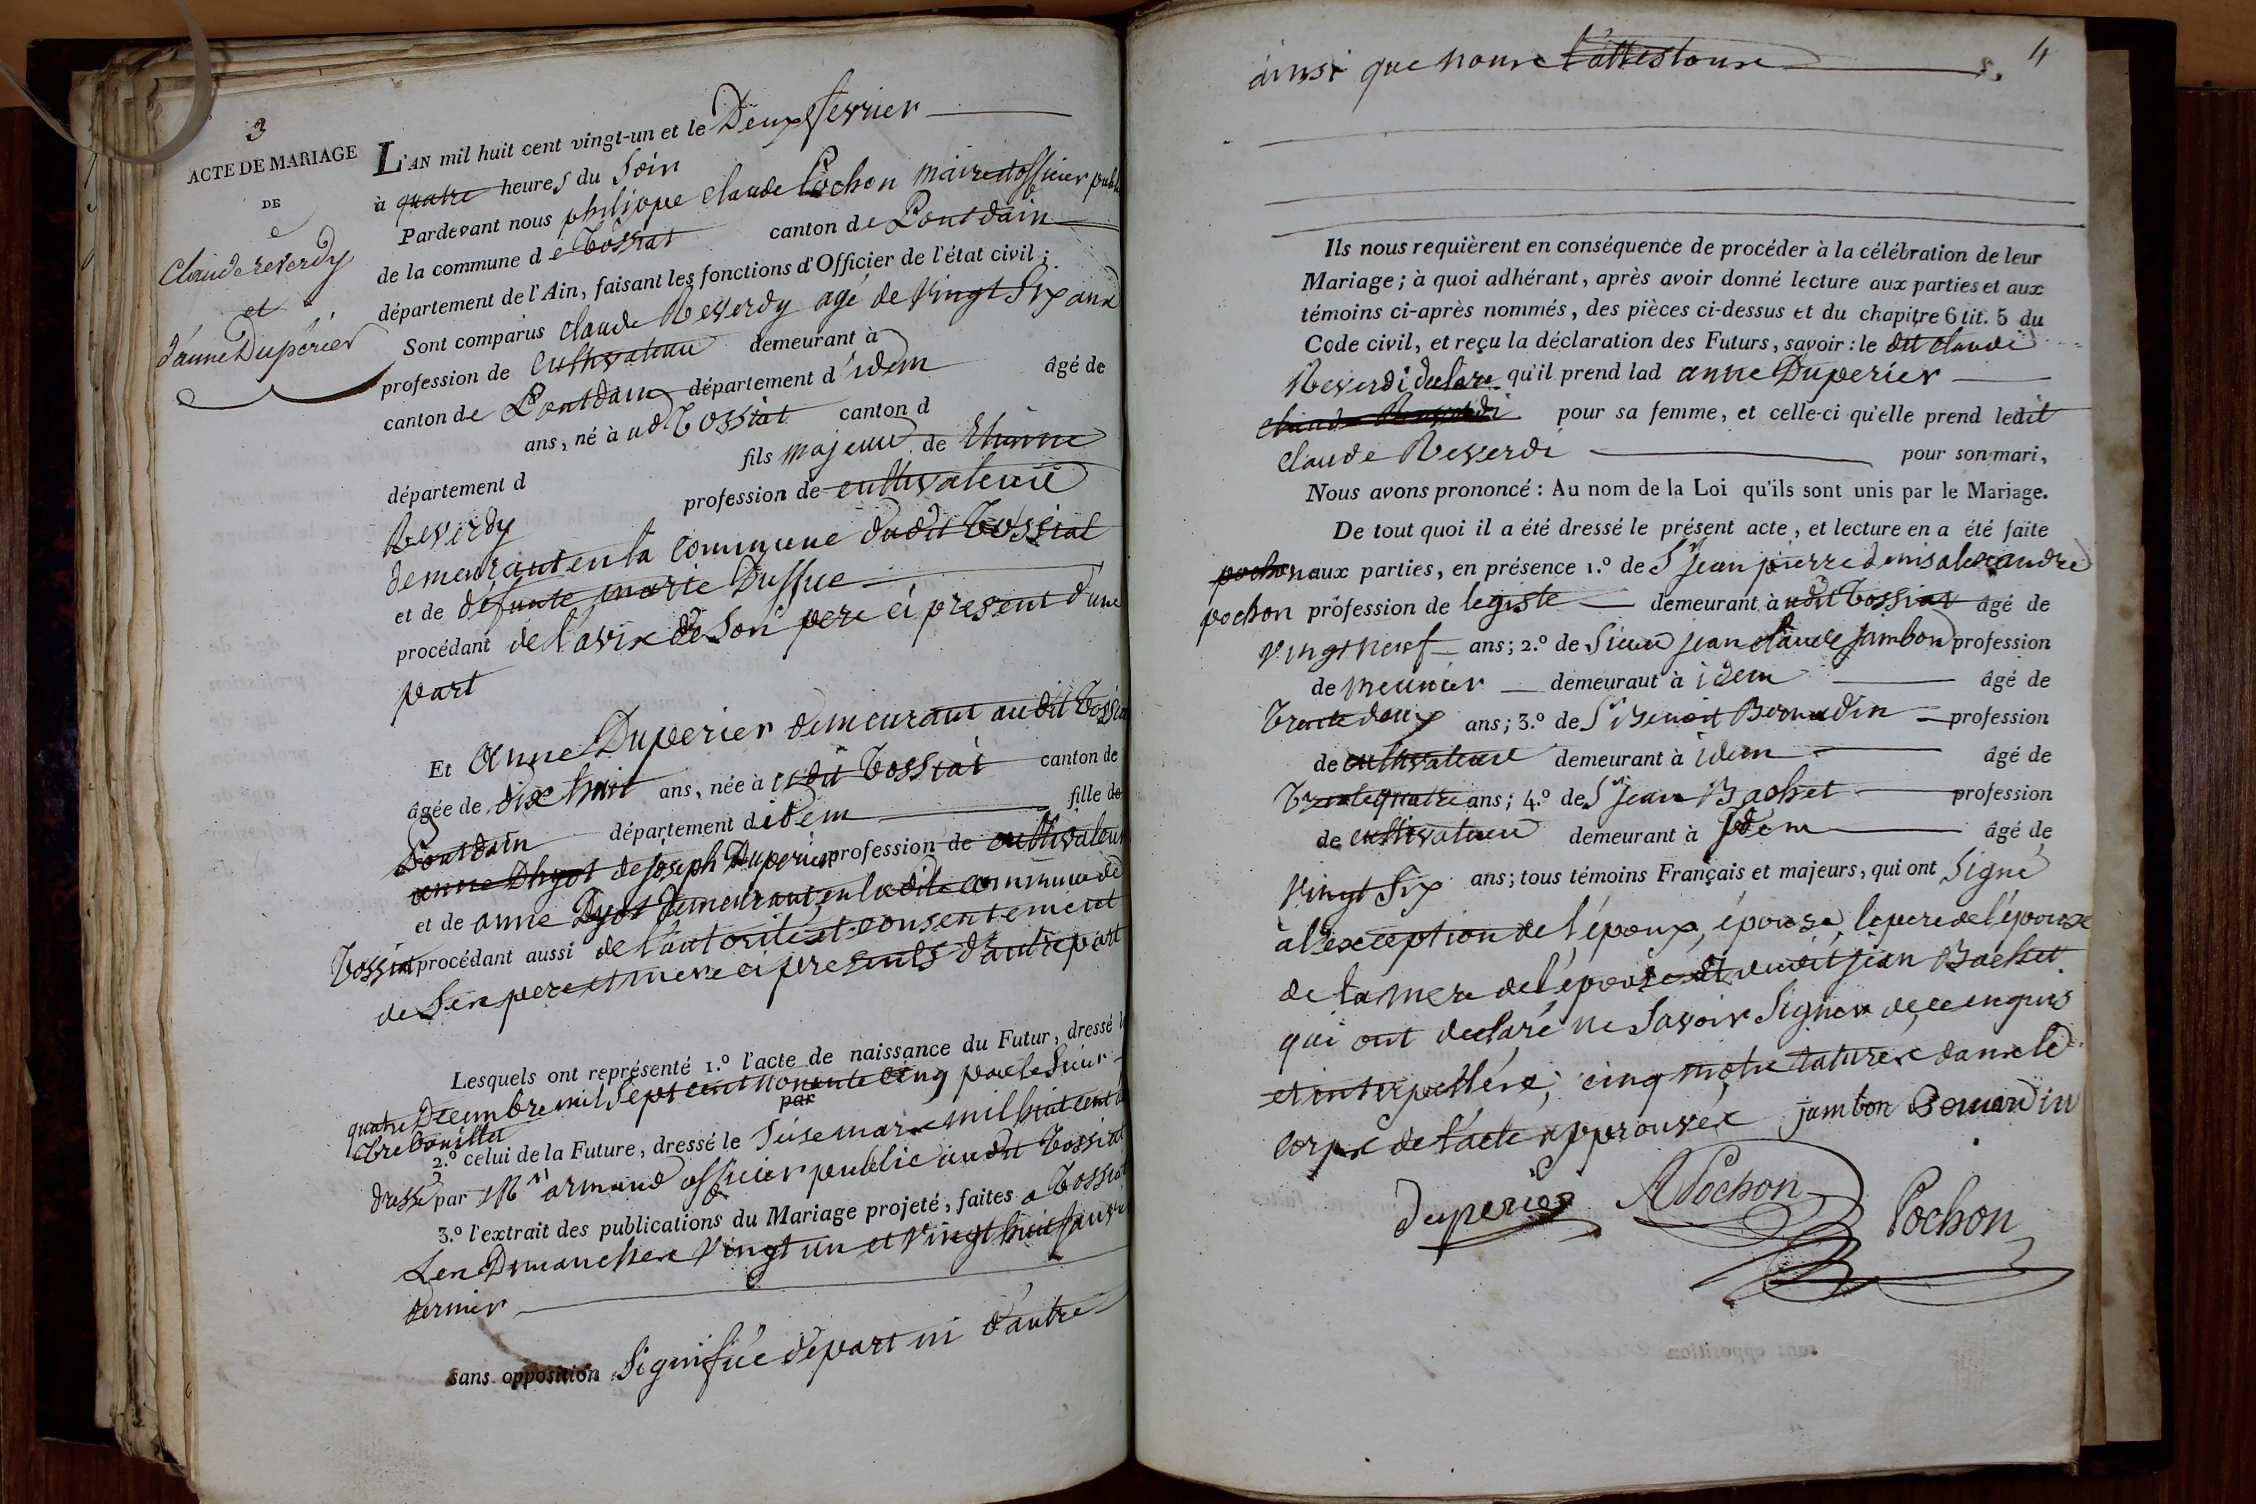 3
ACTE DE MARIAGE
DE
Claude reverdy
et
d'anne Duperier
L'AN mil huit cent vingt-un et le Deux fevrier
à quatre heures du Soir
Pardevant nous philippe Claude Pochon maire et officier publ
de la commune de Tossiat canton de Pontdain
département de l'Ain, faisant les fonctions d'Officier de l'état civil;
Sont comparus Claude Reverdy agé de vingt Six ans
profession de Cultivateur demeurant à
canton de Pontdain département d'idem âgé de
ans, né à ud Tossiat canton d
département d fils majeur de Etienne
Reverdy profession de cultivateur
demeurant en la commune dudit Tossiat
et de défunte marie Duffue
procédant de l'avis de Son pere ci present d'une
part
Et Anne Duperier demeurant audit Tossia
âgée de dix huit ans, née à udit Tossiat canton de
Pontdain département d idem fille de
anne Dhyot de joseph Duperier profession de cultivateur
et de anne Dyot demeurant en ladite commune de
Tossiat procédant aussi de l'autorité et consentement
de Ses pere et mere ci presents d'autre part
Lesquels ont représenté 1.º l'acte de naissance du Futur, dressé l
quatre Decembre mil Sept cent nonante Cing par le Sieur
Trebouillet par
2.º celui de la Future, dressé le Seise mars mil huit cent
dressé par Mr armand officier public audit Tossiat
3.º l'extrait des publications du Mariage projeté, faites a Tossiat
Les Dimanches Vingt un et Vingt huit janvi
dernier
sans opposition Signifiée de part ni d'autre
4
ainsi que nous l'attestons
Ils nous requièrent en conséquence de procéder à la célébration de leur
Mariage; à quoi adhérant, après avoir donné lecture aux parties et aux
témoins ci-après nommés, des pièces ci-dessus et du chapitre 6 tit. 5 du
Code civil, et reçu la déclaration des Futurs, savoir: le dit Claude
Reverdi declare qu'il prend lad anne Duperier
claude Reverdi pour sa femme, et celle-ci qu'elle prend ledit
Claude Reverdi pour son mari,
Nous avons prononcé: Au nom de la Loi qu'ils sont unis par le Mariage.
De tout quoi il a été dressé le présent acte, et lecture en a été faite
pochon aux parties, en présence 1.º de Sr jean pierre denis alexandre
pochon profession de legiste demeurant à udit Tossiat âgé de
vingt neuf ans; 2.º de Sieur jean claude jambon profession
de meunier demeuraut à idem âgé de
Trente deux ans; 3.º de Sr Benoit Bernardin profession
de cultivateur demeurant à idem âgé de
Trente quatre ans; 4.º de Sr jean Bachet profession
de cultivateur demeurant à idem âgé de
Vingt Six ans; tous témoins Français et majeurs, qui ont Signé
à l'exception de l'époux, épouse, le pere de l'époux
de la mere de l'épouse et dudit jean Bachet
qui ont declaré ne Savoir Signer de ce enquis
et interpellés; cinq mots raturés dans le
corps de l'acte approuvés jambon Bernardin
duperier APochon Pochon